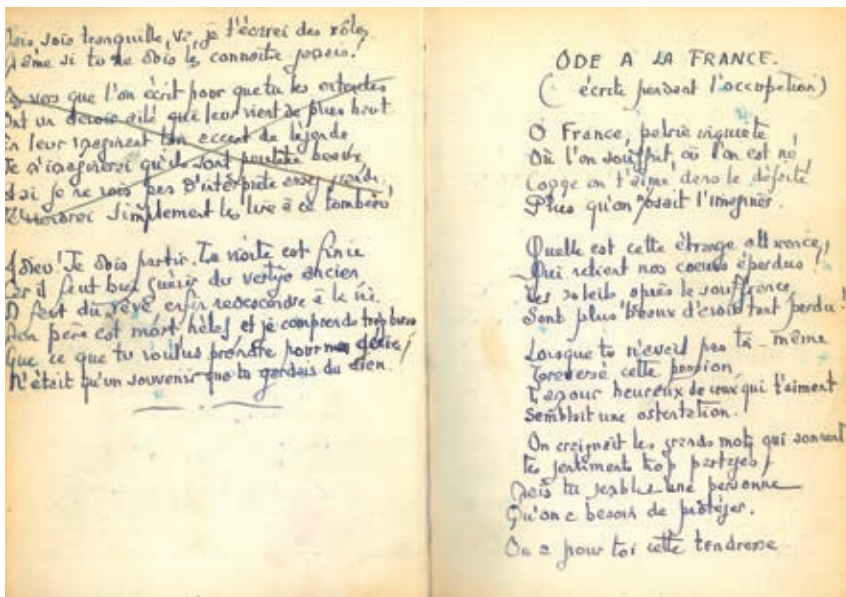 Mais sois tranquille, va, je t'écrirai des rôles
Même si tu ne dois les connaître jamais!
vers que l'on écrit pour que tu les entendes
Ont un devoir ailé qui leur vient de plus haut
En leur imaginant ton accent de légende
Je m'imaginerai qu'ils sont peut-être beaux
je ne vois pas d'interprète assez grande
simplement les lire à ce tombeau!
Adieu! Je dois partir. La visite est finie
Car il faut bien guérir du vertige ancien
Il faut du rêve enfin redescendre à la vie.
Mon père est mort hélas et je comprends trop bien
Que ce que tu voulus prendre pour mon génie
N'était qu'un souvenir que tu gardais du sien.
ODE A LA FRANCE.
( écrite pendant l'occupation)
O France, patrie inquiète
Où l'on souffrit, où l'on est né
Comme on t'aime dans la défaite
Plus qu'on n'osait l'imaginer.
Quelle est cette étrange attirance,
Qui retient nos coeurs éperdus!
Les soleils après la souffrance
Sont plus beaux d'avoir tant perdu!
Lorsque tu n'avais pas toi-même
Traversé cette passion
L'amour heureux de ceux qui t'aiment
Semblait une ostentation.
On craignait les grands mots qui sonnent
Les sentiments trop partagés,
Mais tu sembles une personne
Qu'on a besoin de protéger.
On a pour toi cette tendresse